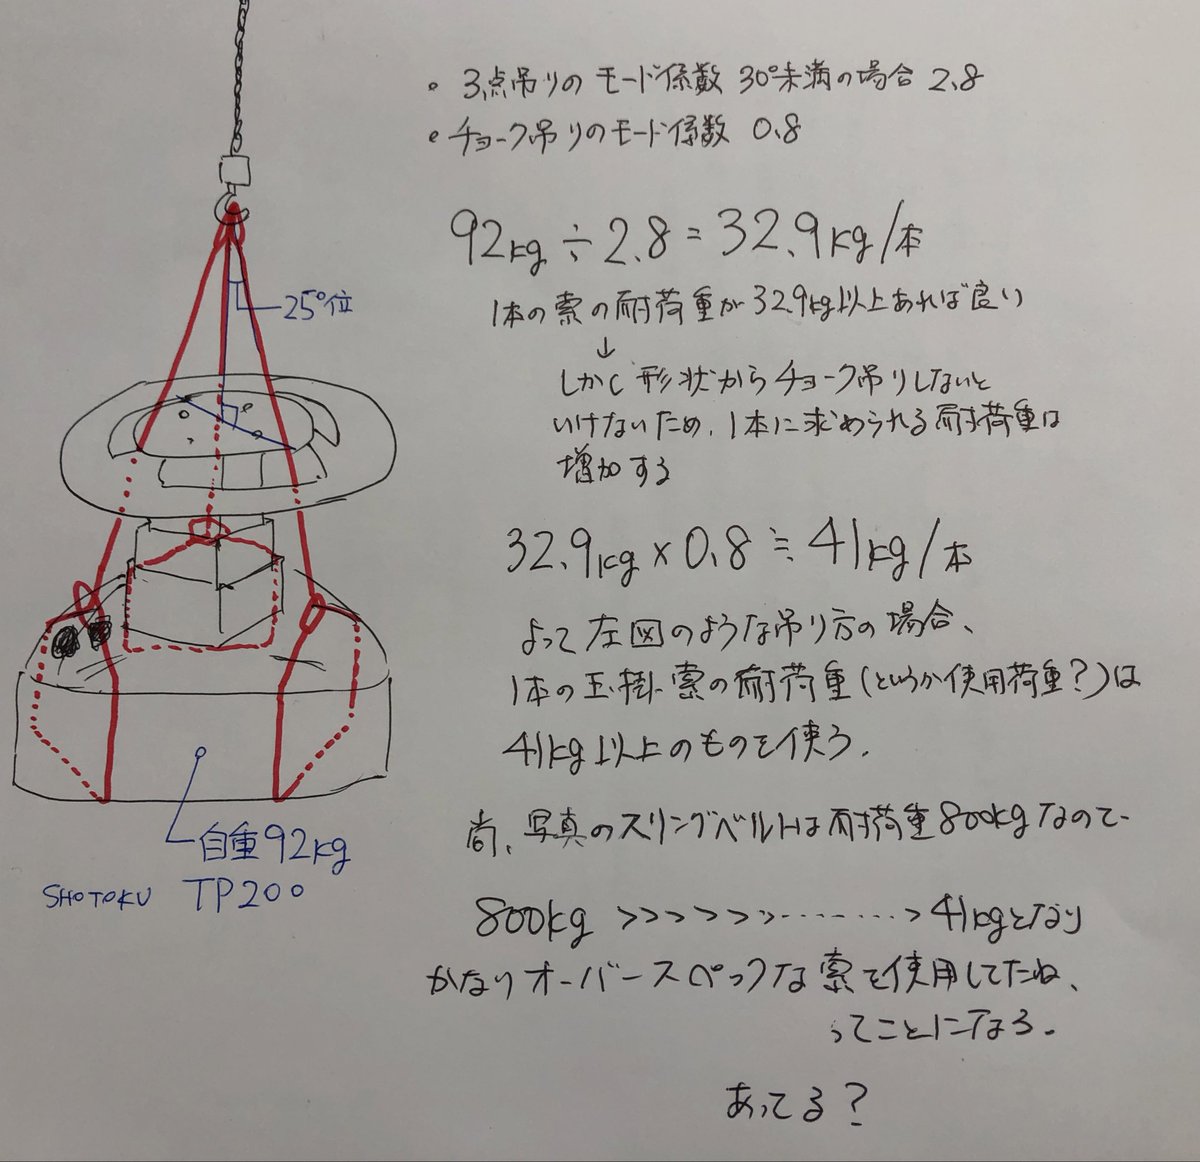 • 3点吊りのモード係数 30°未満の場合 2.8
• チョーク吊りのモード係数 0.8
92kg ÷ 2.8 = 32.9kg/本
1本の索の耐荷重が32.9kg以上あれば良い
↓
しかし形状からチョーク吊りしないと
いけないため、1本に求められる耐荷重は
増加する
32.9kg × 0.8 ≒ 41kg/本
よって左図のような吊り方の場合、
1本の玉掛索の耐荷重(というか使用荷重?)は
41kg以上のものを使う.
尚、写真のスリングベルトは耐荷重800kgなので
800kg >>>>>>>·········> 41kgとなり
かなりオーバースペックな索を使用してたね、
ってことになる.
あってる?
25°位
自重92kg
SHOTOKU TP200